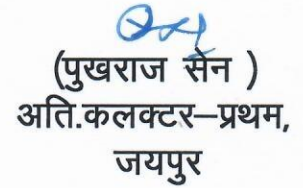 (पुखराज सेन )
अति.कलक्टर–प्रथम,
जयपुर